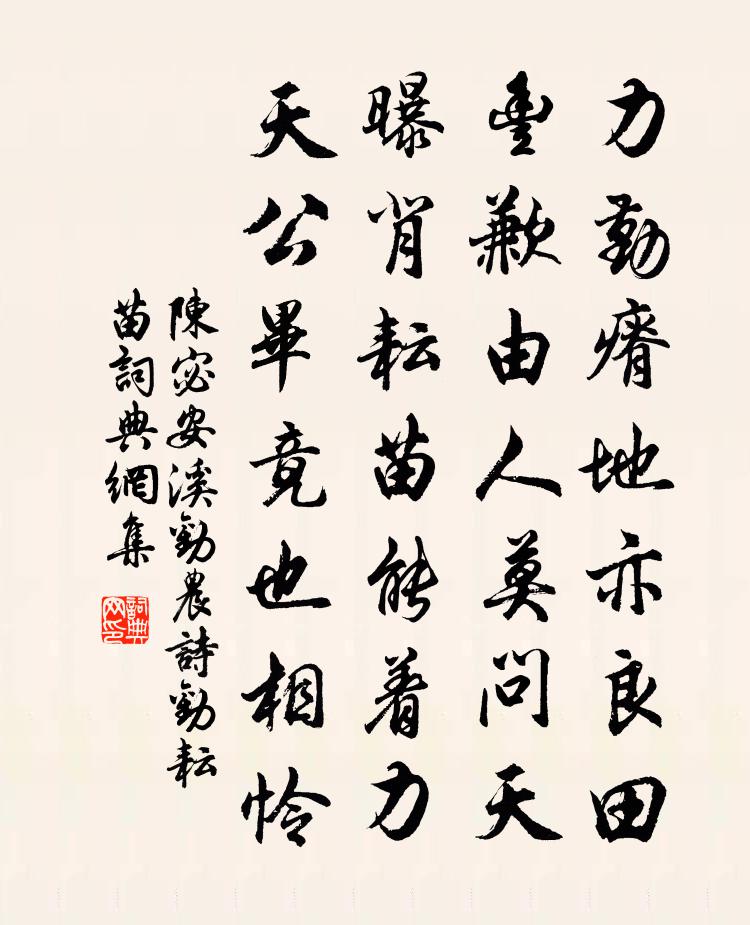 力勤瘠地亦良田
豐歉由人莫問天
曝背耘苗能着力
天公畢竟也相憐
陳宓安溪勸農詩勸耘
苗詞典網集
詞典网印